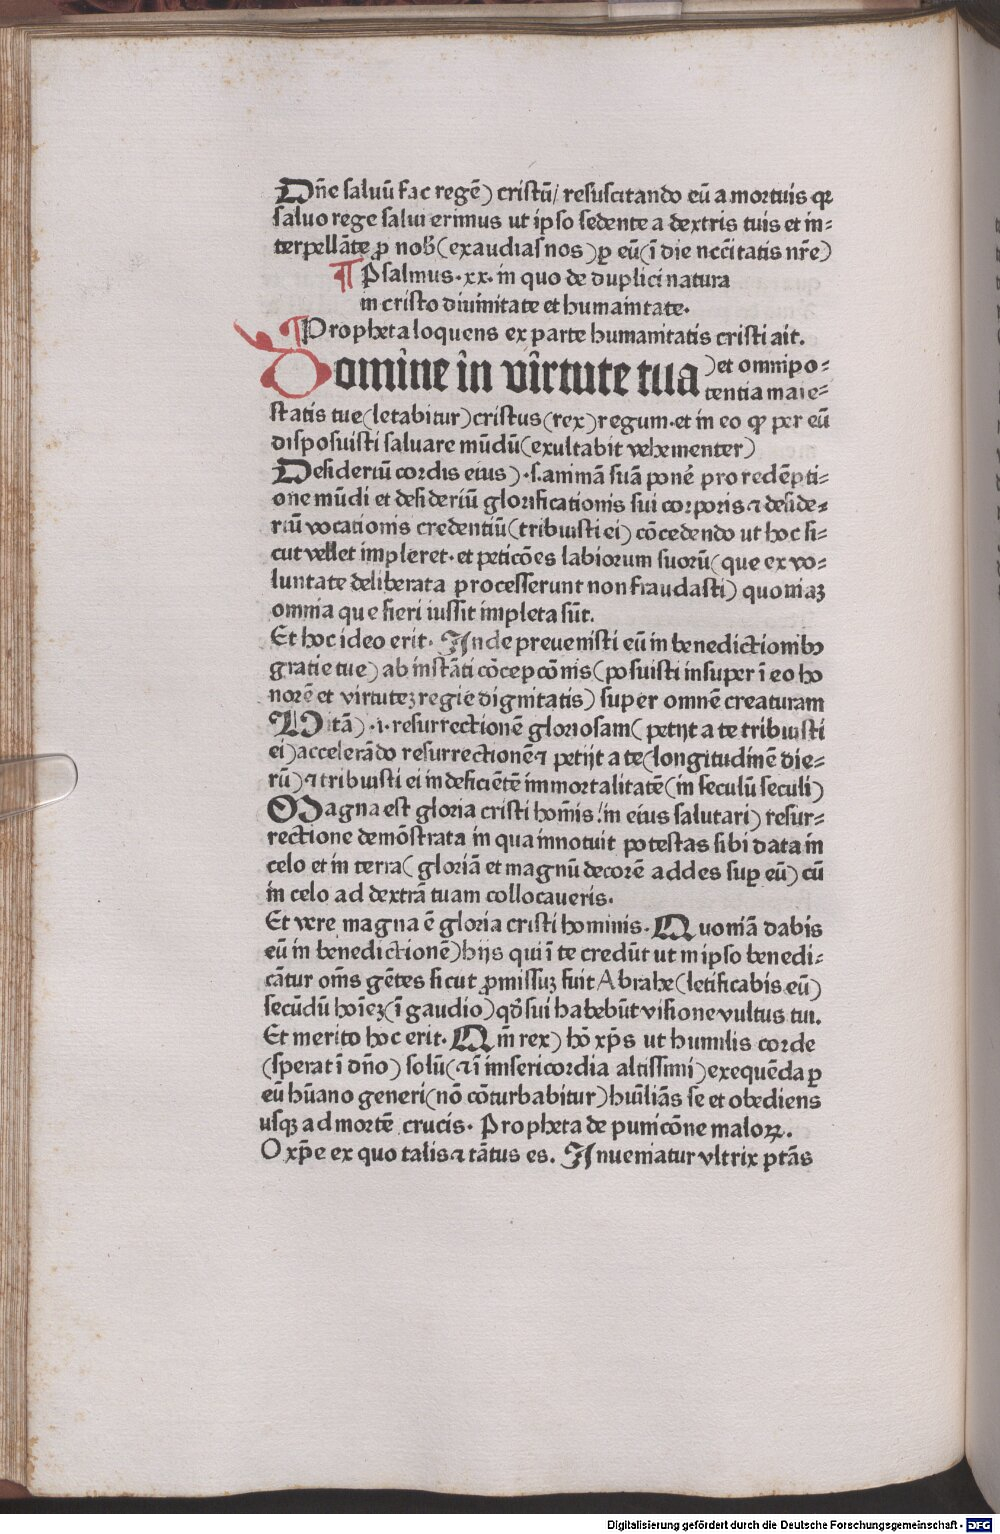 Dn̄e saluū fac regē) cristū/ resuscitando eū a mortuis qꝛ
saluo rege salui erimus ut ipso sedente a dextris tuis et in⸗
terpellāte ꝓ nob̄(exaudias nos)ꝑ eū(ī die nccītatis nr̄e)
¶ Psalmus.xx. in quo de duplici natura
in cristo diuinitate et humanitate.
¶Propheta loquens ex parte humanitatis cristi ait.
Domine in virtute tua )et omnipo⸗
tentia maie⸗
statis tue(letabitur)cristus(rex)regum.et in eo qꝫ per eū
disposuisti saluare mūdū(exultabit vehementer)
Desideriū cordis eius).s.animā suā ponē pro redēpti⸗
one mūdi et desideriū glorificationis sui corporis⁊ deside⸗
riū vocationis credentiū(tribuisti ei) cōcedendo ut hoc si⸗
cut vellet impleret.et peticōes labiorum suorū(que ex vo⸗
luntate deliberata processerunt non fraudasti) quoniaꝫ
omnia que fieri iussit impleta sūt.
Et hoc ideo erit. Inde preuenisti eū in benedictionibꝫ
gratie tue) ab instāti cōcepcōnis(posuisti insuper ī eo ho
norē et virtuteꝫ regie dignitatis) super omnē creaturam
Uitā).i.resurrectionē gloriosam( petijt a te tribuisti
ei)accelerādo resurrectionē⁊ petijt a te(longitudinē die⸗
rū)⁊ tribuisti ei indeficiētē immortalitatē(in seculū seculi)
Magna est gloria cristi hoīnis(in eius salutari) resur⸗
rectione demōstrata in qua innotuit potestas sibi data in
celo et in terra( gloriā et magnū decorē addes suꝑ eū) cū
in celo ad dextrā tuam collocaueris.
Et vere magna ē gloria cristi hominis. Quoniā dabis
eū in benedictionē)hijs qui ī te credūt ut in ipso benedi⸗
cātur om̄s gētes sicut ꝓmissuꝫ fuit Abrahe(letificabis eū)
secūdū hoīeꝫ(ī gaudio)qd̄ sui habebūt visione vultus tui.
Et merito hoc erit. Qm̄ rex) hō xp̄s ut humilis corde
(sperat ī dn̄o) solū(⁊ ī misericordia altissimi)exequēda ꝑ
eū hūano generi(nō cōturbabitur)hūiliās se et obediens
usqꝫ ad mortē crucis. Propheta de punicōne maloꝝ.
O xp̄e ex quo talis⁊ tātus es. Inueniatur vltrix ptās
Digitalisierung gefördert durch die Deutsche Forschungsgemeinschaft - DFG